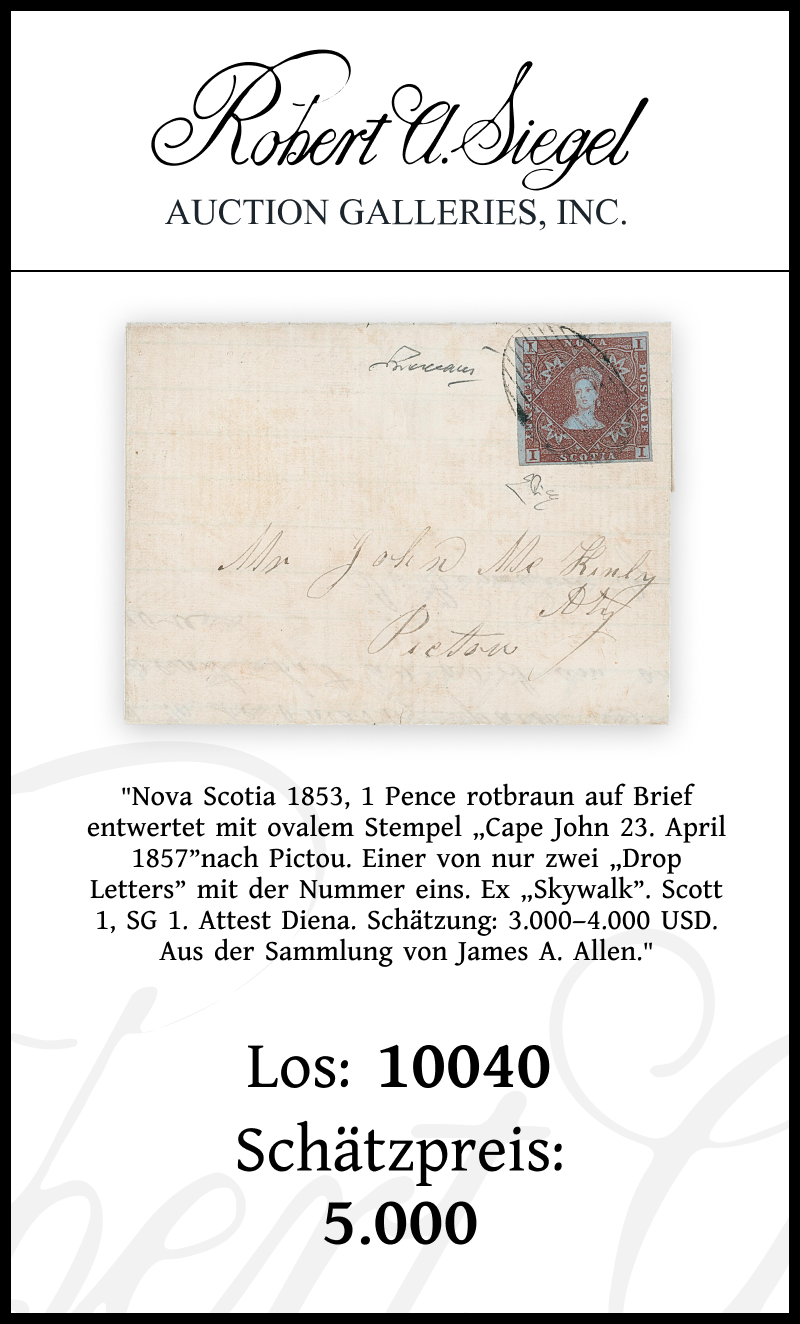 Robert A. Siegel
AUCTION GALLERIES, INC.
I NOVA I
POSTAGE
I SCOTIA I
Mr John Mc Kinly
Aty
Pictou
"Nova Scotia 1853, 1 Pence rotbraun auf Brief
entwertet mit ovalem Stempel „Cape John 23. April
1857”nach Pictou. Einer von nur zwei „Drop
Letters” mit der Nummer eins. Ex „Skywalk”. Scott
1, SG 1. Attest Diena. Schätzung: 3.000–4.000 USD.
Aus der Sammlung von James A. Allen."
Los: 10040
Schätzpreis:
5.000